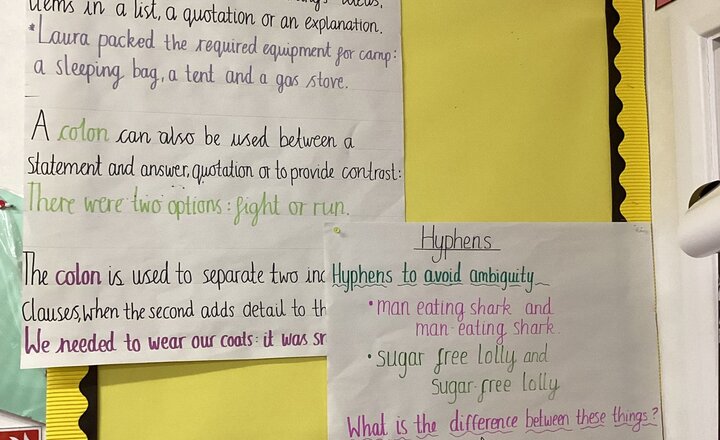 items in a list, a quotation or an explanation.
*Laura packed the required equipment for camp:
a sleeping bag, a tent and a gas stove.
A colon can also be used between a
Statement and answer, quotation or to provide contrast:
There were two options: fight or run.
The colon is used to separate two
Clauses, when the second adds detail to
We needed to wear our coats: it was
Hyphens
Hyphens to avoid ambiguity
• man eating shark and
man-eating shark.
• sugar free lolly and
sugar-free lolly
What is the difference between these things?